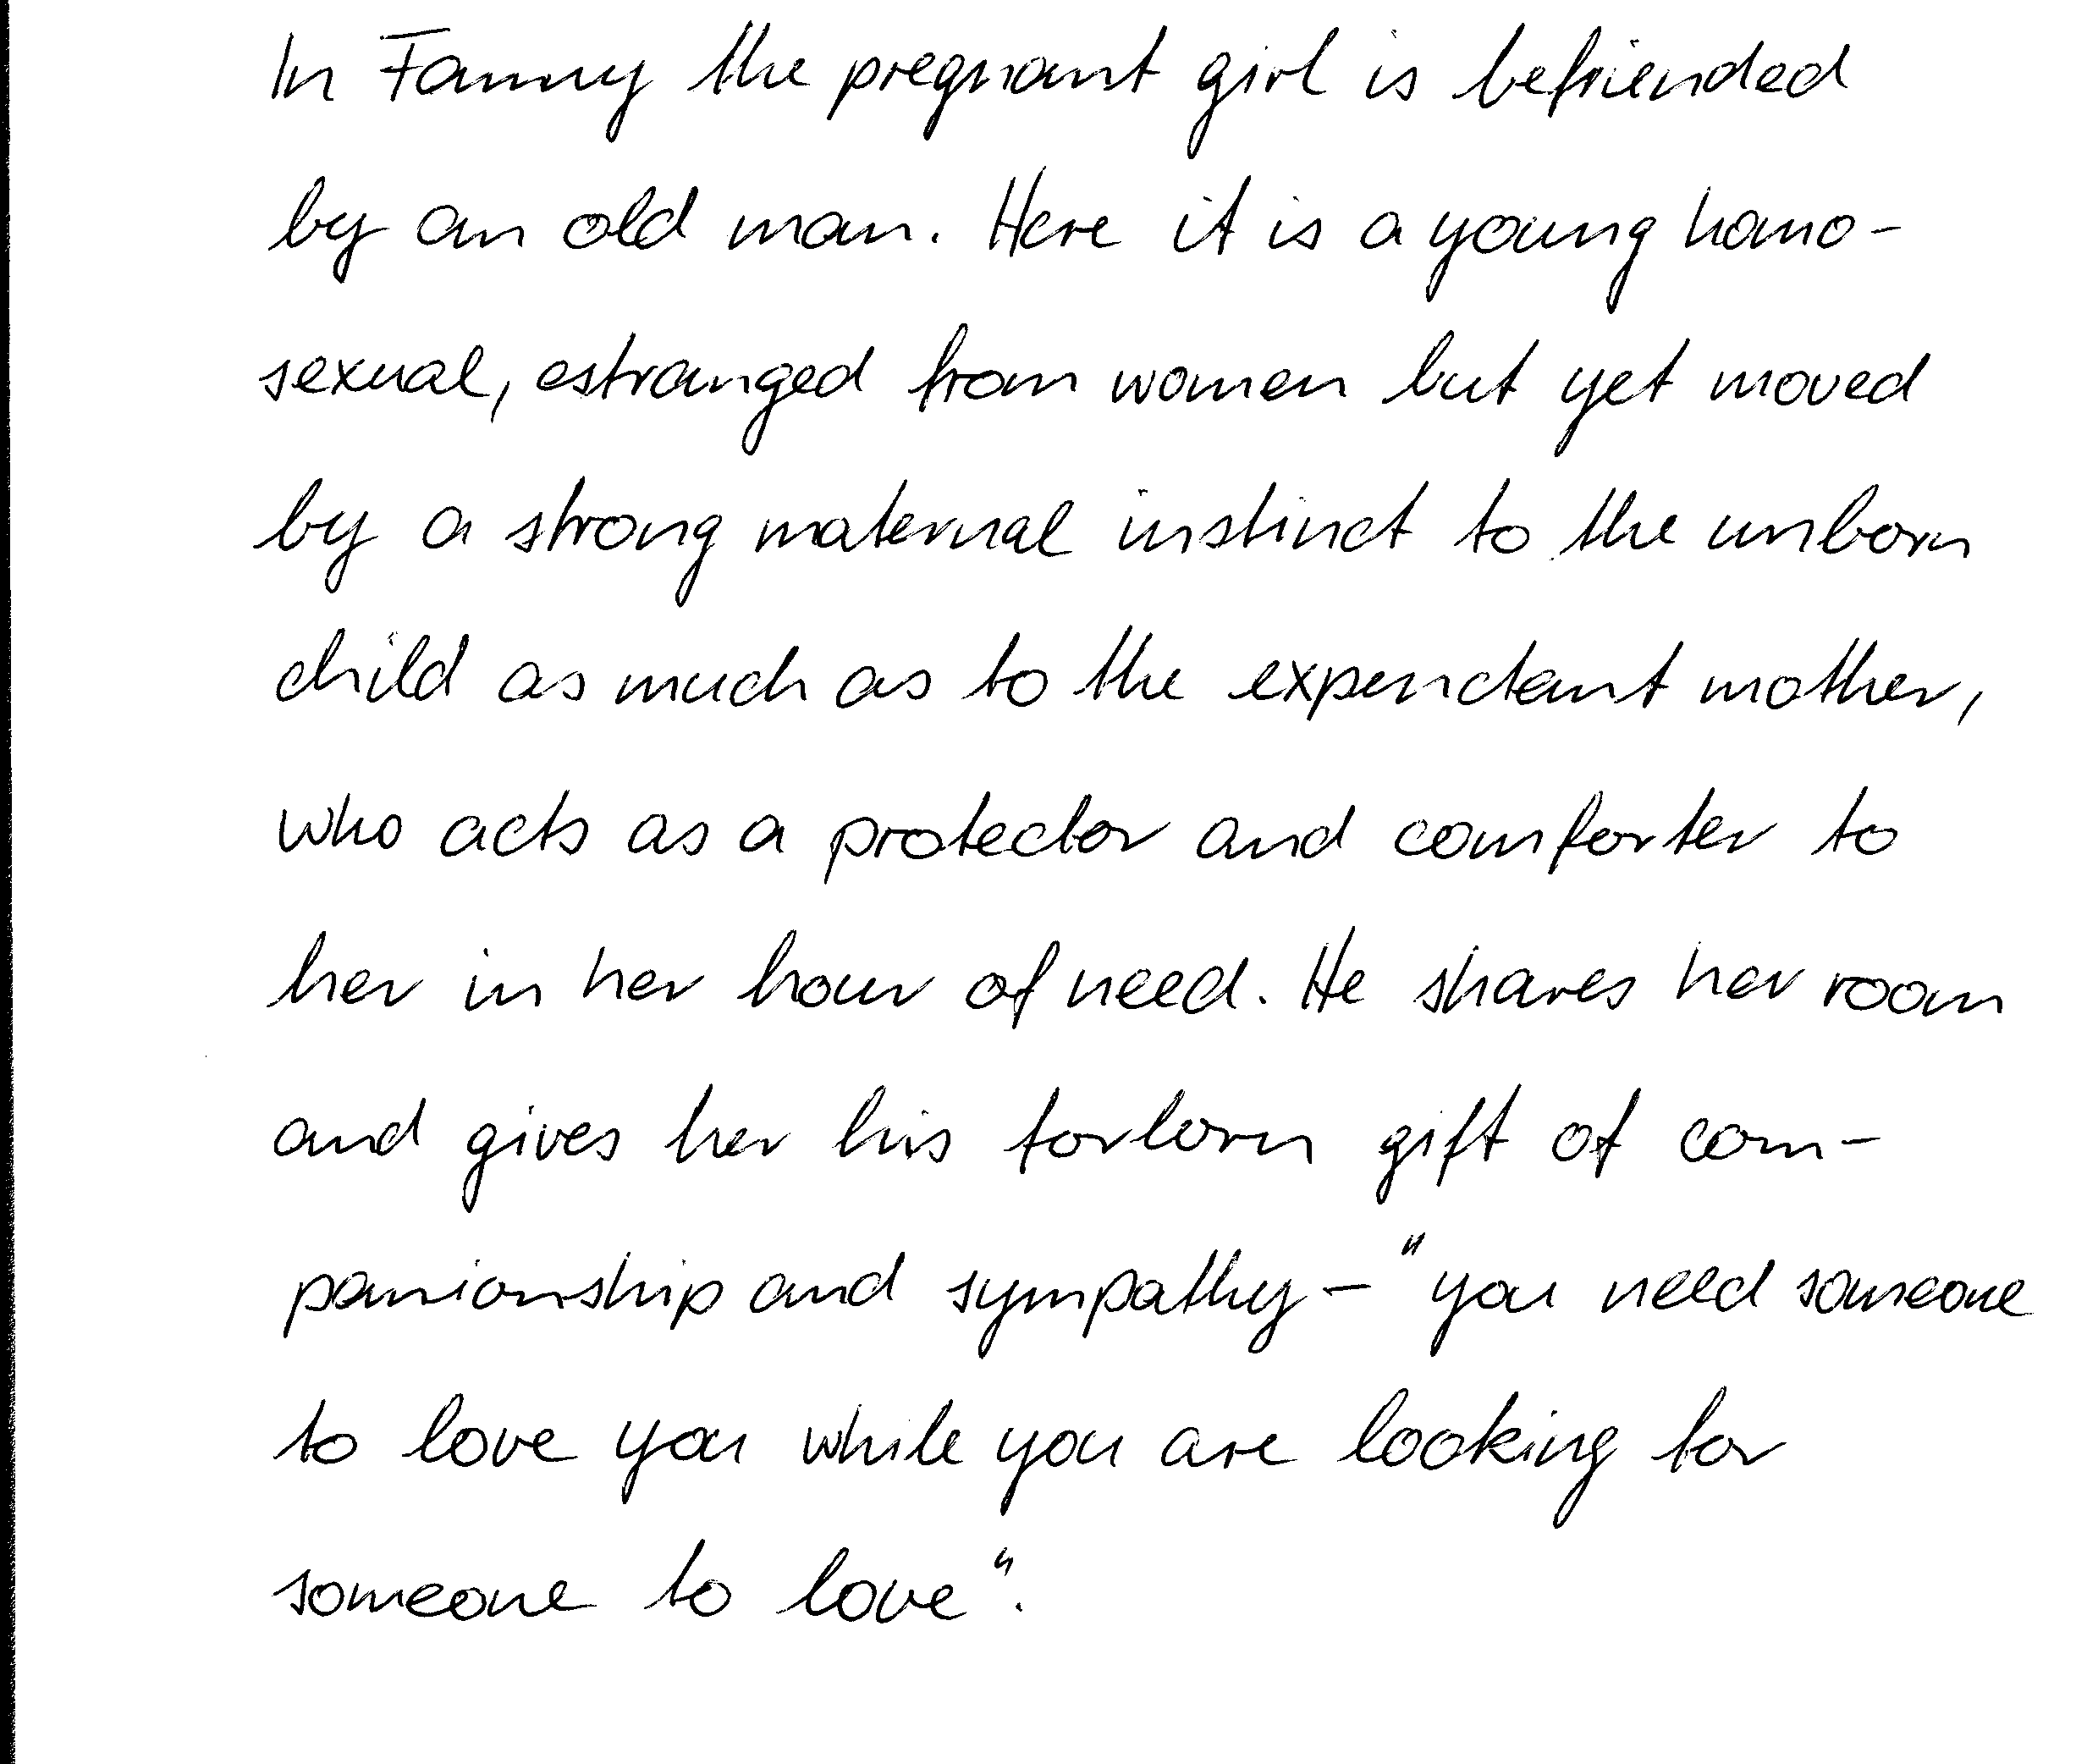 In Fanny the pregnant girl is befriended
by an old man. Here it is a young homo-
sexual, estranged from women but yet moved
by a strong maternal instinct to the unborn
child as much as to the expenctant mother,
who acts as a protector and comforter to
her in her hour of need. He shares her room
and gives her his forlorn gift of com-
panionship and sympathy - "you need someone
to love you while you are looking for
someone to love".